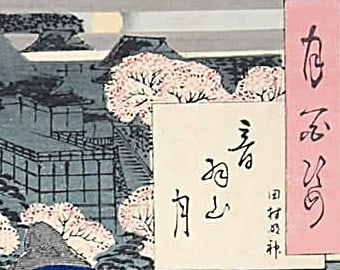 月百姿
音羽山月
田村明神